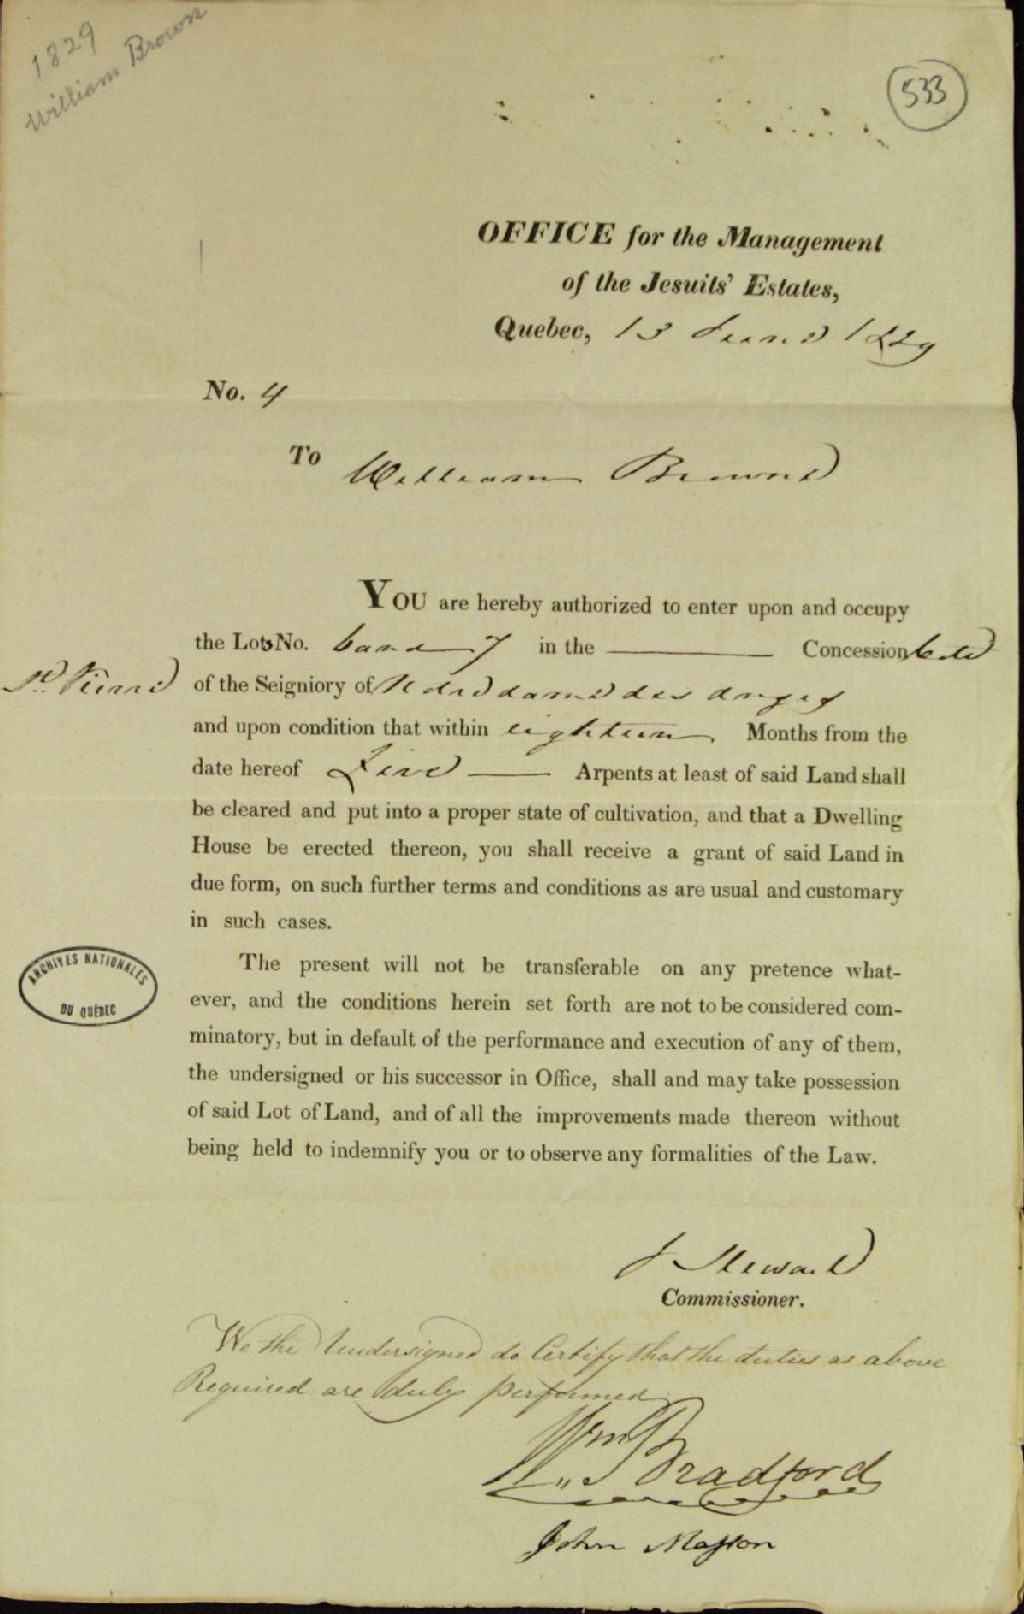 1829
William Brown
533
OFFICE for the Management
of the Jesuits' Estates,
Quebec, 13 June 1829
No. 4
To William Browne
YOU are hereby authorized to enter upon and occupy
the Lots No. 6 and 7 in the Concession Cote
St. Pierre of the Seigniory of Notre dame des anges
and upon condition that within eighteen Months from the
date hereof Five Arpents at least of said Land shall
be cleared and put into a proper state of cultivation, and that a Dwelling
House be erected thereon, you shall receive a grant of said Land in
due form, on such further terms and conditions as are usual and customary
in such cases.
The present will not be transferable on any pretence what-
ever, and the conditions herein set forth are not to be considered com-
minatory, but in default of the performance and execution of any of them,
the undersigned or his successor in Office, shall and may take possession
of said Lot of Land, and of all the improvements made thereon without
being held to indemnify you or to observe any formalities of the Law.
ARCHIVES NATIONALES
DU QUÉBEC
J Stewart
Commissioner.
We the Undersigned do Certify that the duties as above
Required are duly performed
Wm Bradford
John Masson